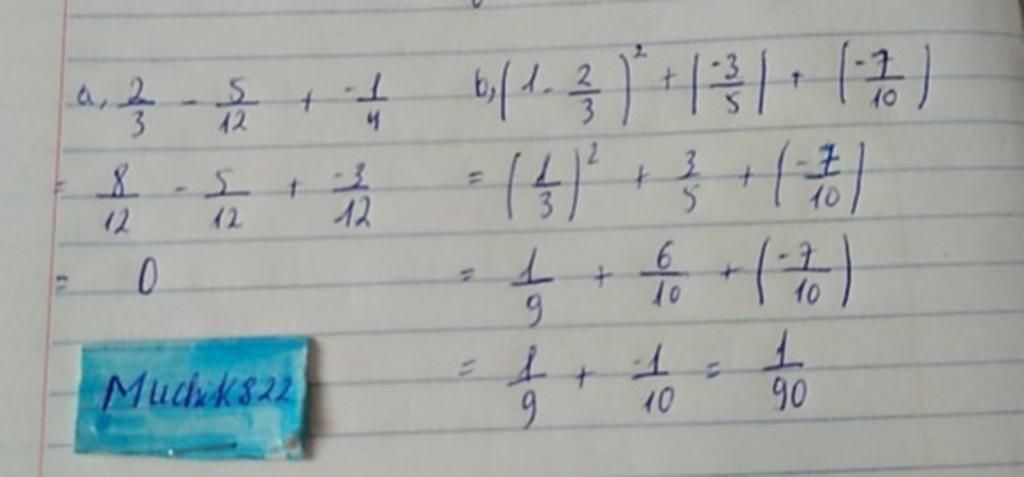 a, 2/3 - 5/12 + -1/4
= 8/12 - 5/12 + -3/12
= 0
b, (1 - 2/3)² + |-3/5| + (-7/10)
= (1/3)² + 3/5 + (-7/10)
= 1/9 + 6/10 + (-7/10)
= 1/9 + -1/10 = 1/90
Muchik822